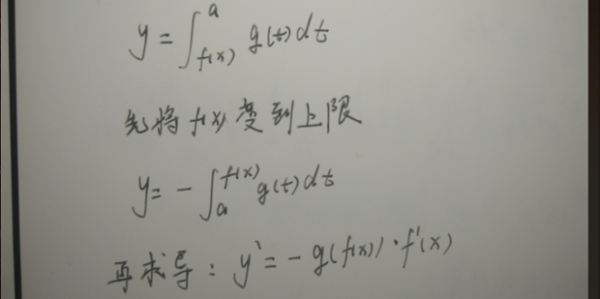 y = ∫_{f(x)}^{a} g(t)dt
先将f(x)变到上限
y = - ∫_{a}^{f(x)} g(t)dt
再求导：y' = - g(f(x))·f'(x)